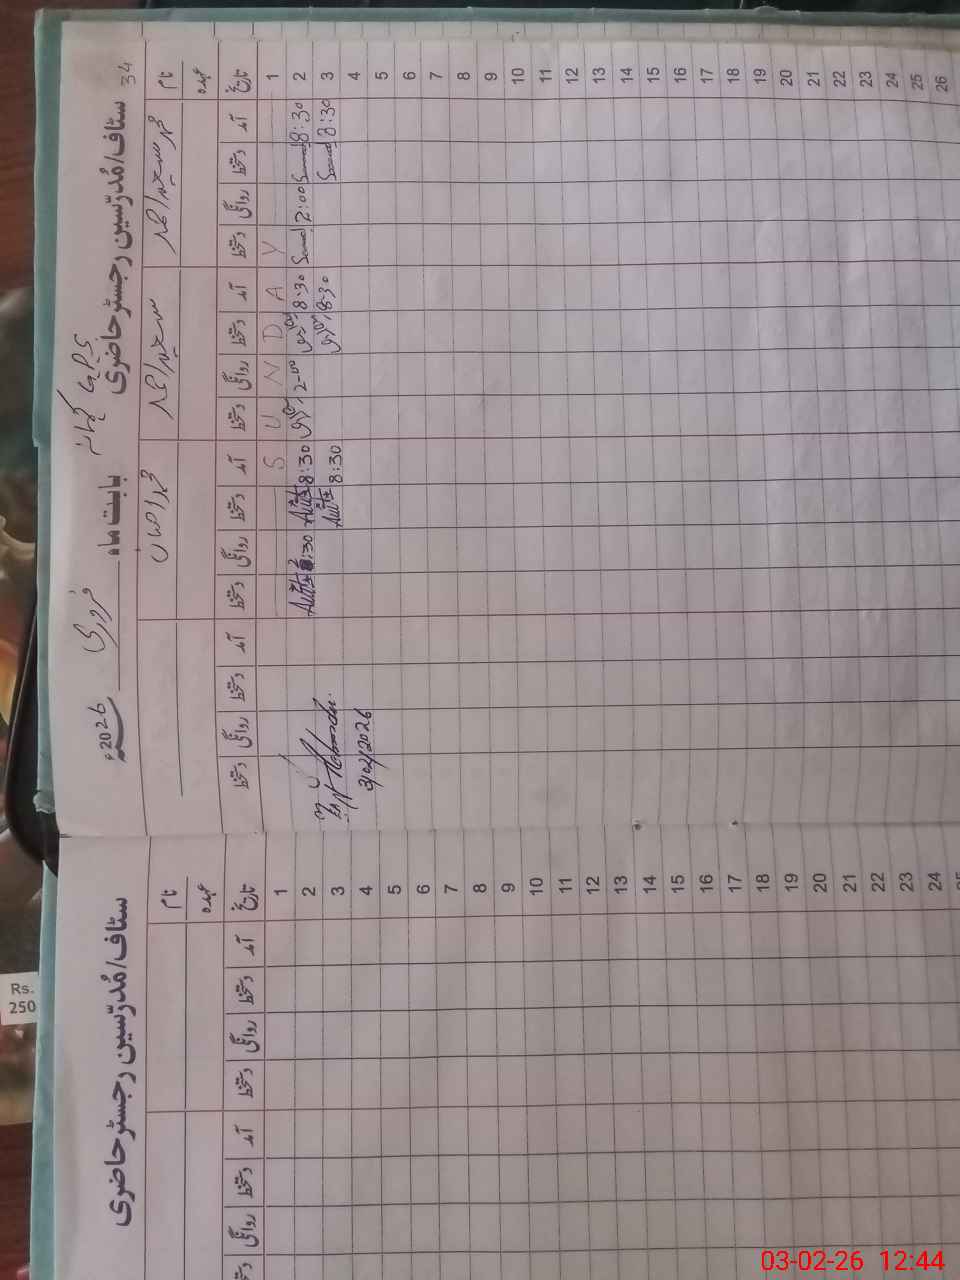 34
سٹاف/مُدرّسین رجسٹر حاضری GPS بابت ماہ فروری 2026ء
نام محمد سعید احمد سعید احمد محمد احسان
عہدہ
تاریخ آمد دستخط روانگی دستخط آمد دستخط روانگی دستخط آمد دستخط روانگی دستخط آمد دستخط روانگی دستخط
1 S U N D A Y
2 8:30 Saeed 2:00 Saeed 8:30 2-00 8:30 2:30
3 8:30 Saeed 8:30 8:30
4
5
6
7
8
9
10
11
12
13
14
15
16
17
18
19
20
21
22
23
24
25
26
3/02/2026
سٹاف/مُدرّسین رجسٹر حاضری
نام
عہدہ
تاریخ آمد دستخط روانگی دستخط آمد دستخط روانگی دستخط
1
2
3
4
5
6
7
8
9
10
11
12
13
14
15
16
17
18
19
20
21
22
23
24
Rs.
250
03-02-26 12:44